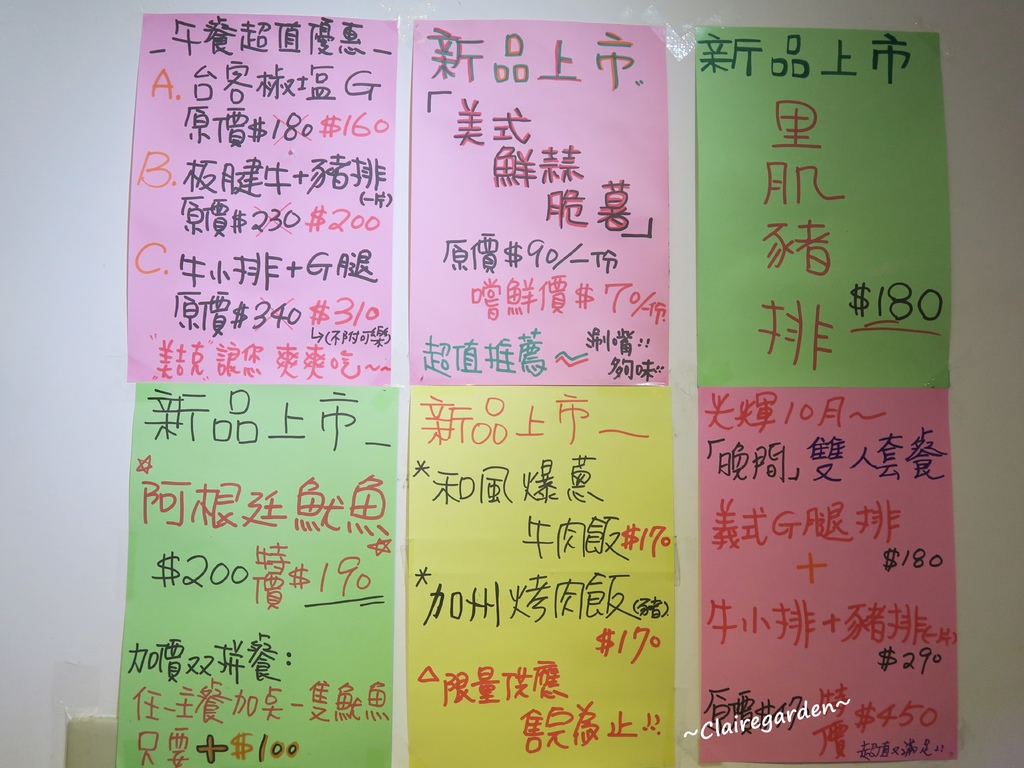 _午餐超值優惠_
A. 台客椒塩G
原價$180 $160
B. 板腱牛+豬排
(一片)
原價$230 $200
C. 牛小排+G腿
原價$340 $310
↳(不附可樂)
"美喆克"讓您 爽爽吃~~
新品上市"
「美式
鮮蒜
脆薯」
原價$90/一份
嚐鮮價$70/份
超值推薦~
涮嘴!!
夠味!!
新品上市
里
肌
豬
排
$180
新品上市_
☆阿根廷魷魚☆
$200 特價$190
加價双拼餐:
任一主餐加点一隻魷魚
只要+$100
新品上市~
*和風爆蔥
牛肉飯$170
*加州烤肉飯(豬)
$170
△限量供應
售完為止!!
光輝10月~
「晚間」雙人套餐
義式G腿排
$180
+
牛小排+豬排(一片)
$290
原價$470 特價$450
超值又滿足!!
~Clairegarden~